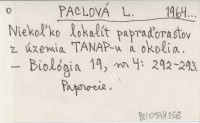 o PACLOVÁ L. 1964...
Niekoľko lokalít papraďorastov
z územia TANAP-u a okolia.
– Biológia 19, nr 4: 292-293.
Paprocie.